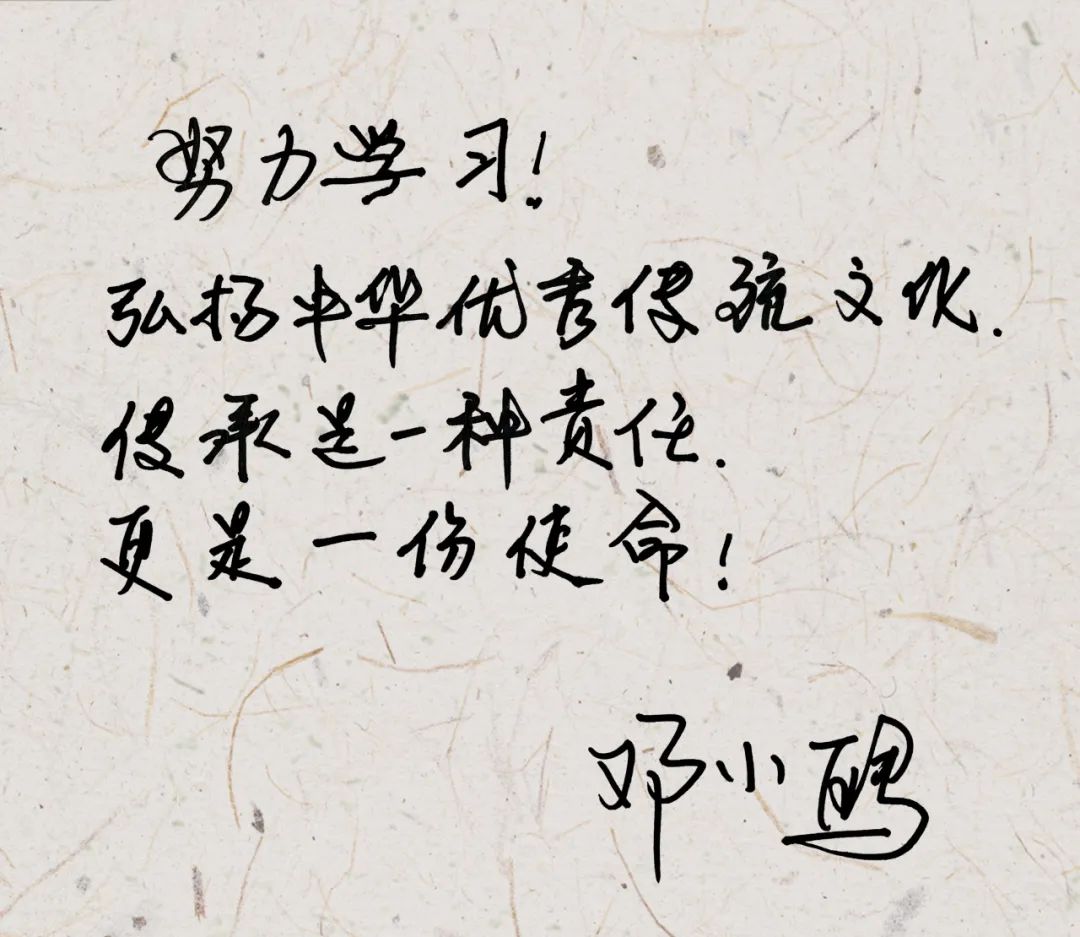 努力学习!
弘扬中华优秀传统文化.
传承是一种责任.
更是一份使命!
邓小鹂